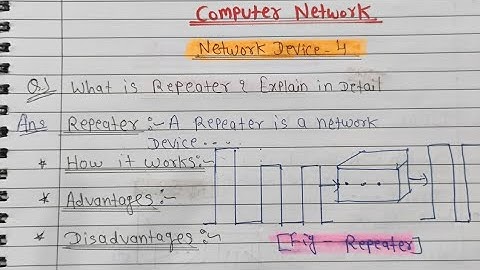 Computer Network
Network Device-4
Q.1 What is Repeater? Explain in Detail
Ans Repeater:- A Repeater is a network
Device.....
* How it works:-
* Advantages:-
* Disadvantages:-
[Fig - Repeater]